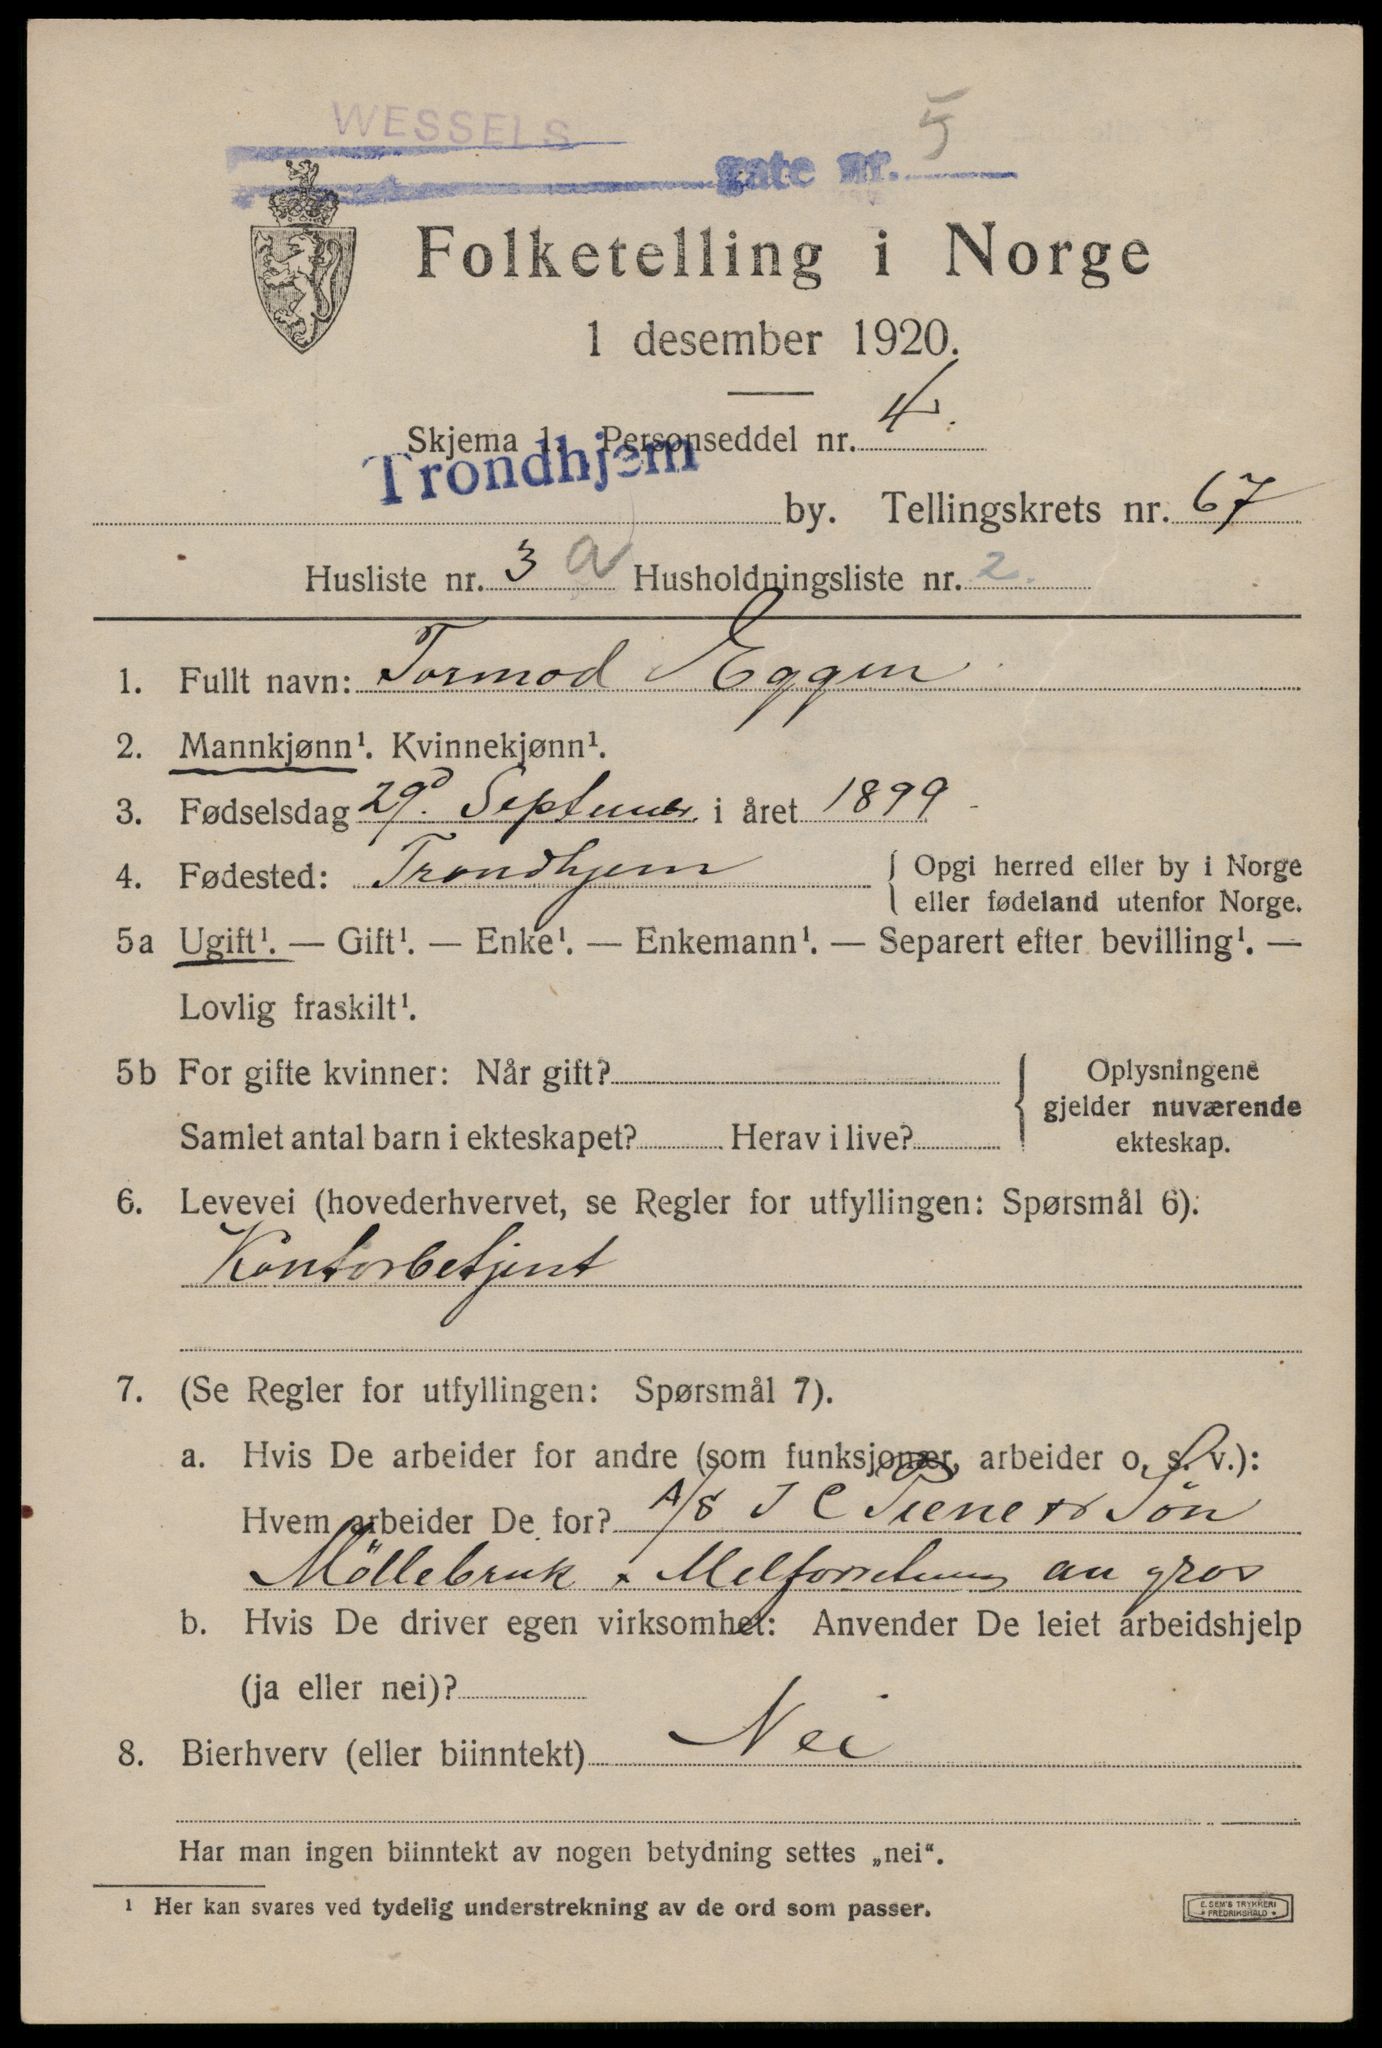 WESSELS
gate nr. 5
Folketelling i Norge
1 desember 1920.
Skjema 1. Personseddel nr. 4.
Trondhjem
by. Tellingskrets nr. 67
Husliste nr. 3 a Husholdningsliste nr. 2.
1. Fullt navn: Tormod Eggen
2. Mannkjønn¹. Kvinnekjønn¹.
3. Fødselsdag 29d. Septembr. i året 1899
4. Fødested: Trondhjem { Opgi herred eller by i Norge
eller fødeland utenfor Norge.
5a Ugift¹. — Gift¹. — Enke¹. — Enkemann¹. — Separert efter bevilling¹. —
Lovlig fraskilt¹.
5b For gifte kvinner: Når gift? { Oplysningene
gjelder nuværende
Samlet antal barn i ekteskapet? Herav i live? ekteskap.
6. Levevei (hovederhvervet, se Regler for utfyllingen: Spørsmål 6).
Kontorbetjent
7. (Se Regler for utfyllingen: Spørsmål 7).
a. Hvis De arbeider for andre (som funksjonær, arbeider o. s. v.):
Hvem arbeider De for? A/S I C Piene & Søn
Möllebruk & Melforretning en gros
b. Hvis De driver egen virksomhet: Anvender De leiet arbeidshjelp
(ja eller nei)?
8. Bierhverv (eller biinntekt) Nei
Har man ingen biinntekt av nogen betydning settes „nei“.
¹ Her kan svares ved tydelig understrekning av de ord som passer.
E. SEM'S TRYKKERI
FREDRIKSHALD